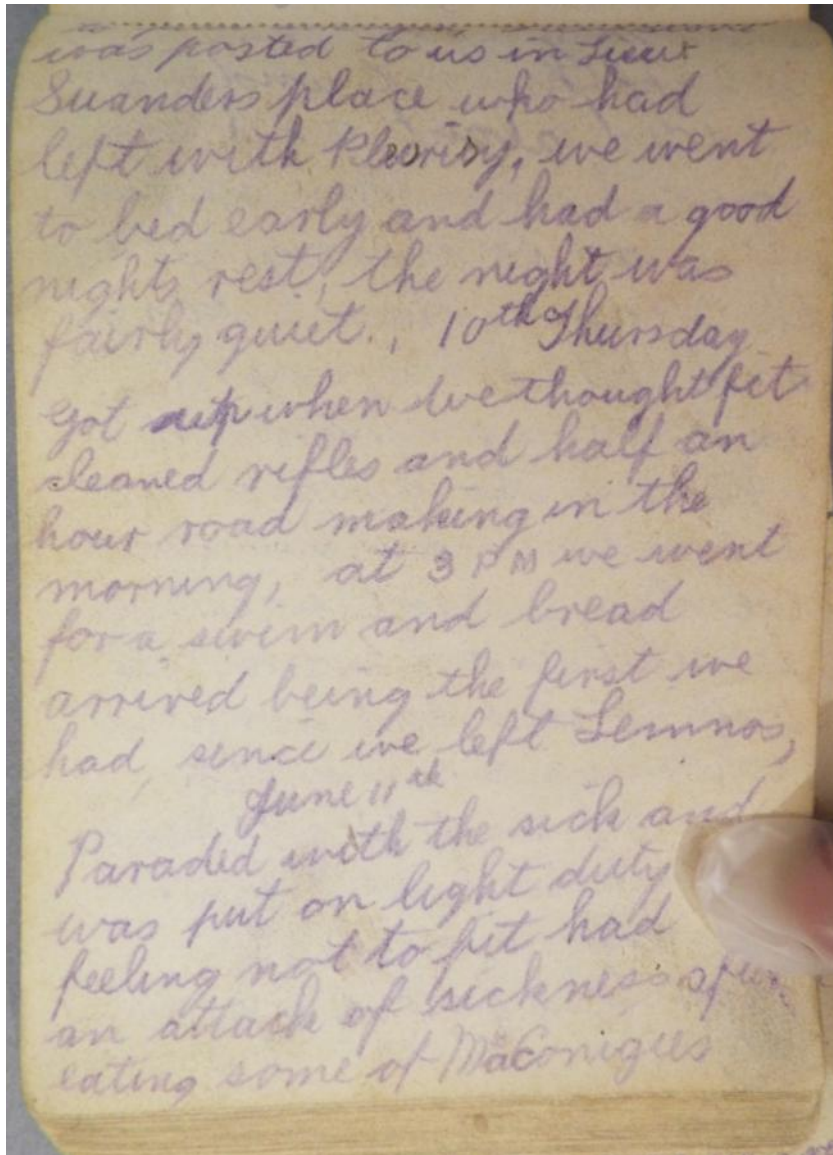 was posted to us in Lieut
Suanders place who had
left with Pleurisy, we went
to bed early and had a good
nights rest, the night was
fairly quiet., 10th Thursday
Got up when we thought fit
cleaned rifles and half an
hour road making in the
morning, at 3 PM we went
for a swim and bread
arrived being the first we
had since we left Lemnos,
June 11th
Paraded with the sick and
was put on light duty
feeling not to fit had
an attack of sickness after
eating some of MaConigies